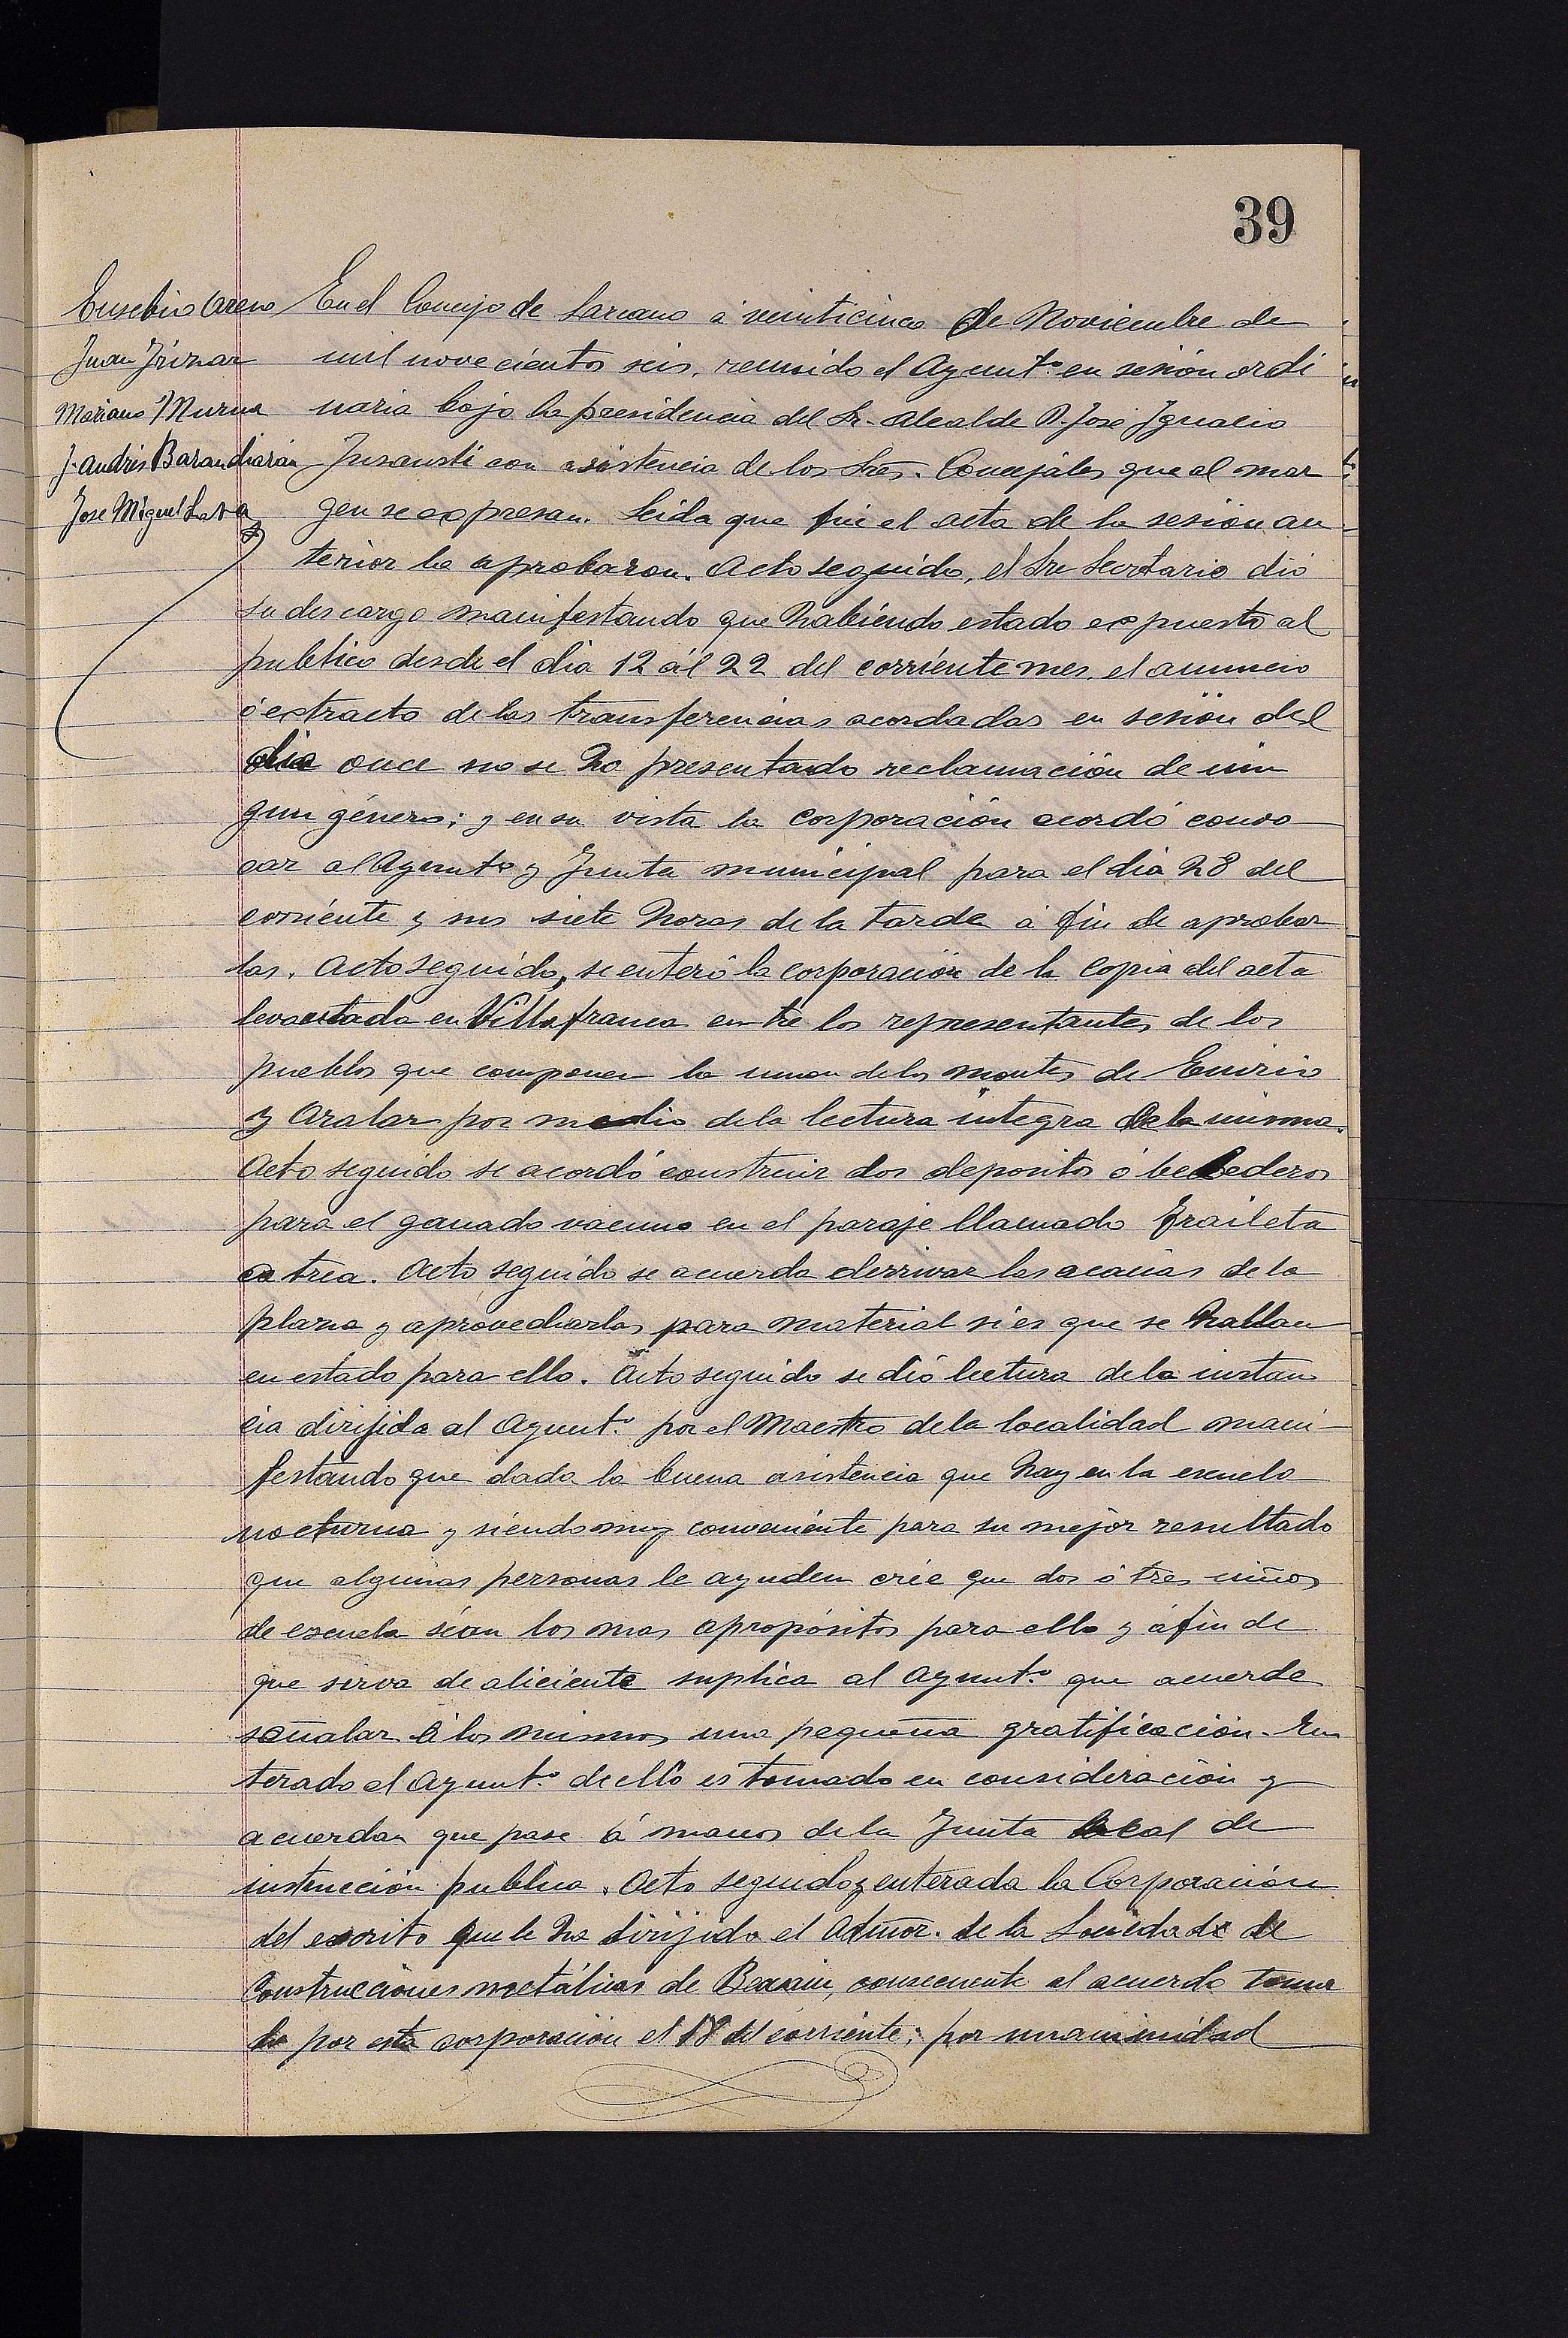 39
Eusebio Areso
Juan Irizar
Mariano Murua
J. Andrés Barandiarán
Jose Miguel Lasa
En el Concejo de Lazcano á veinticinco de Noviembre de
mil novecientos seis, reunido el Ayunt.º en sesión ordi
naria bajo la presidencia del Sr. Alcalde D. José Ignacio
Insausti con asistencia de los Sres. Concejales que al mar
gen se expresan. Leida que fué el acta de la sesión an
terior la aprobaron. Acto seguido, el Sr Secretario dió
su descargo manifestando que habiendo estado expuesto al
publico desde el dia 12 ál 22 del corriente mes, el anuncio
ó extracto de las transferencias acordadas en sesión del
dia once no se ha presentado reclamación de nin
gun género; y en su vista la Corporación acordó convo
car al Ayunt.º y Junta municipal para el dia 28 del
corriente y sus siete horas de la tarde á fin de aprobar
las. Acto seguido, se enteró la corporación de la copia del acta
levantada en Villafranca entre los representantes de los
pueblos que componen la union de los montes de Enirio
y Aralar por medio de la lectura integra de la misma.
Acto seguido se acordó construir dos depositos ó bebederos
para el ganado vacuno en el paraje llamado Fraileta
catrea. Acto seguido se acuerda derrivar las acacias de la
plaza y aprovecharlas para material si es que se hallan
en estado para ello. Acto seguido se dió lectura de la instan
cia dirijida al Ayunt.º por el Maestro de la localidad mani-
festando que dada la buena asistencia que hay en la escuela
nocturna y siendo muy conveniente para su mejor resultado
que algunas personas le ayuden crée que dos ó tres niños
de escuela séan los mas apropósitos para ello y áfin de
que sirva de aliciente suplica al Ayunt.º que acuerde
señalar á los mismos una pequeña gratificación. En
terado el Ayunt.º de ello es tomado en consideración y
acuerdan que pase á manos de la Junta local de
instrucción publica. Acto seguido y enterada la Corporación
del escrito que le ha dirijido el Admor. de la Sociedad de
Construcciones metálicas de Beasain, consecuente al acuerdo toma
do por esta corporación el 18 del corriente; por unanimidad